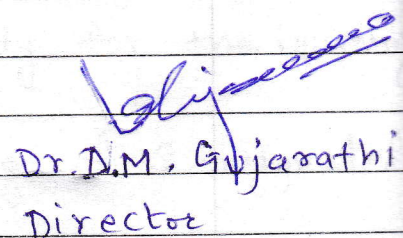 Dr. D.M. Gujarathi
Director